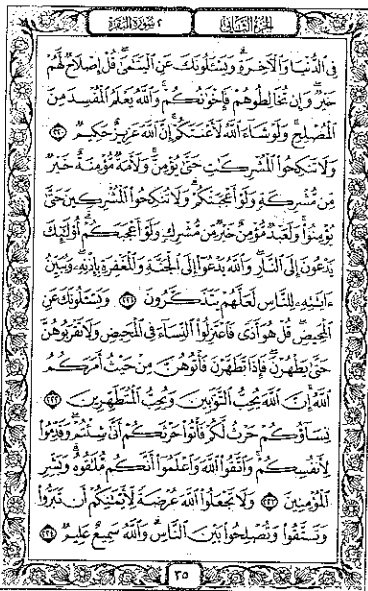 الجزء الثاني
٢ سورة البقرة
فِي الدُّنْيَا وَالْآخِرَةِ وَيَسْـَٔلُونَكَ عَنِ الْيَتَـٰمَىٰ قُلْ إِصْلَاحٌ لَّهُمْ
خَيْرٌ وَإِن تُخَالِطُوهُمْ فَإِخْوَٰنُكُمْ وَاللَّهُ يَعْلَمُ الْمُفْسِدَ مِنَ
الْمُصْلِحِ وَلَوْ شَاءَ اللَّهُ لَأَعْنَتَكُمْ إِنَّ اللَّهَ عَزِيزٌ حَكِيمٌ ٢٢٠
وَلَا تَنكِحُوا الْمُشْرِكَـٰتِ حَتَّىٰ يُؤْمِنَّ وَلَأَمَةٌ مُّؤْمِنَةٌ خَيْرٌ
مِّن مُّشْرِكَةٍ وَلَوْ أَعْجَبَتْكُمْ وَلَا تُنكِحُوا الْمُشْرِكِينَ حَتَّىٰ
يُؤْمِنُوا وَلَعَبْدٌ مُّؤْمِنٌ خَيْرٌ مِّن مُّشْرِكٍ وَلَوْ أَعْجَبَكُمْ أُولَـٰئِكَ
يَدْعُونَ إِلَى النَّارِ وَاللَّهُ يَدْعُوا إِلَى الْجَنَّةِ وَالْمَغْفِرَةِ بِإِذْنِهِ وَيُبَيِّنُ
ءَايَـٰتِهِ لِلنَّاسِ لَعَلَّهُمْ يَتَذَكَّرُونَ ٢٢١ وَيَسْـَٔلُونَكَ عَنِ
الْمَحِيضِ قُلْ هُوَ أَذًى فَاعْتَزِلُوا النِّسَاءَ فِي الْمَحِيضِ وَلَا تَقْرَبُوهُنَّ
حَتَّىٰ يَطْهُرْنَ فَإِذَا تَطَهَّرْنَ فَأْتُوهُنَّ مِنْ حَيْثُ أَمَرَكُمُ
اللَّهُ إِنَّ اللَّهَ يُحِبُّ التَّوَّٰبِينَ وَيُحِبُّ الْمُتَطَهِّرِينَ ٢٢٢
نِسَاؤُكُمْ حَرْثٌ لَّكُمْ فَأْتُوا حَرْثَكُمْ أَنَّىٰ شِئْتُمْ وَقَدِّمُوا
لِأَنفُسِكُمْ وَاتَّقُوا اللَّهَ وَاعْلَمُوا أَنَّكُم مُّلَـٰقُوهُ وَبَشِّرِ
الْمُؤْمِنِينَ ٢٢٣ وَلَا تَجْعَلُوا اللَّهَ عُرْضَةً لِّأَيْمَـٰنِكُمْ أَن تَبَرُّوا
وَتَتَّقُوا وَتُصْلِحُوا بَيْنَ النَّاسِ وَاللَّهُ سَمِيعٌ عَلِيمٌ ٢٢٤
٣٥